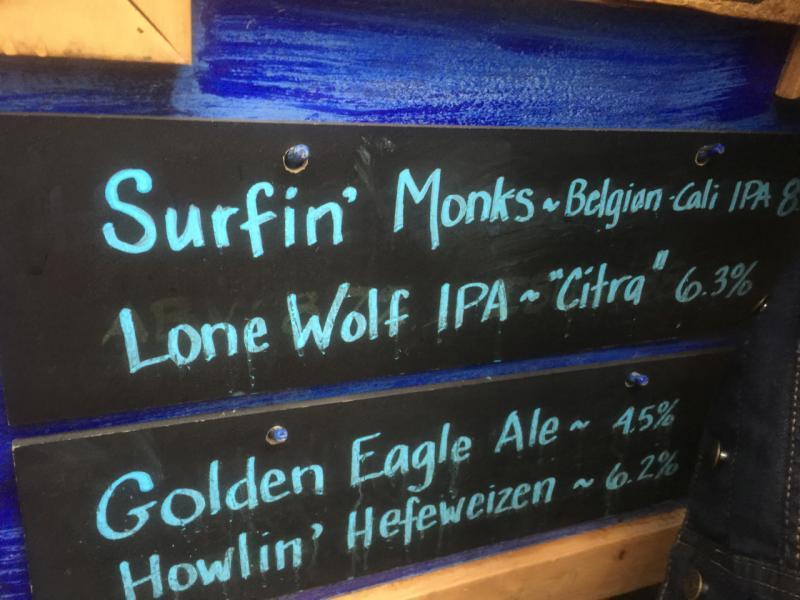 Surfin' Monks ~ Belgian-Cali IPA 8
Lone Wolf IPA ~ "Citra" 6.3%
Golden Eagle Ale ~ 4.5%
Howlin' Hefeweizen ~ 6.2%